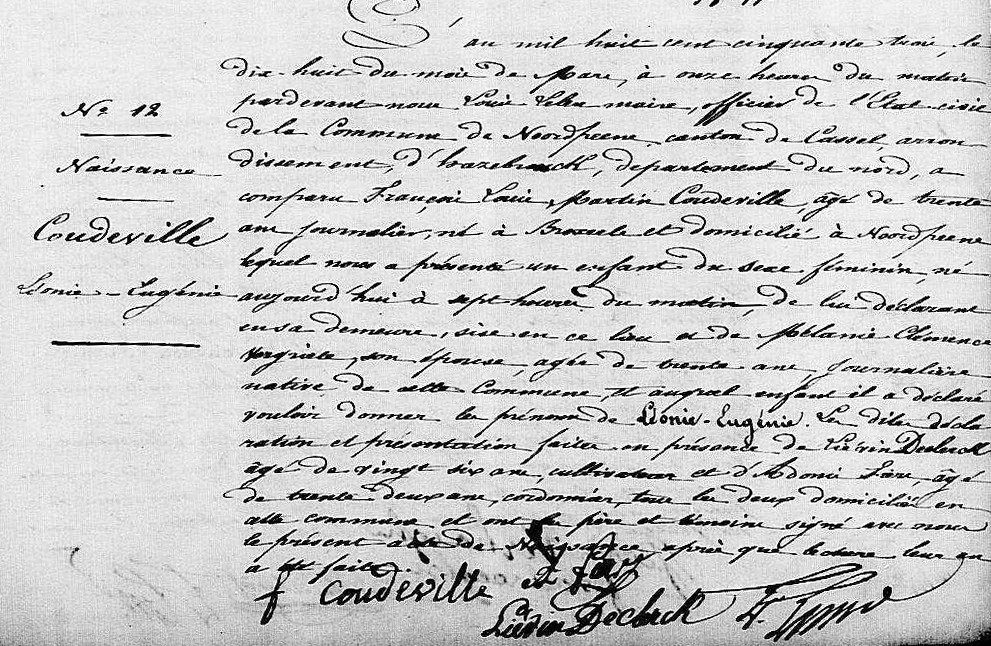 N° 12
Naissance
Coudeville
Léonie-Eugénie
L'an mil huit cent cinquante trois, le
dix-huit du mois de Mars, à onze heures du matin
pardevant nous Louis maire, officier de l'Etat civil
de la Commune de Noordpeene, canton de Cassel, arron
dissement, d'hazebrouck, département du nord, a
comparu François Louis, Martin Coudeville, âgé de trente
ans journalier, né à Broxeele et domicilié à Noordpeene
lequel nous a présenté un enfant du sexe féminin, né
aujourd'hui à sept heures du matin, de lui déclarant
en sa demeure, sise en ce lieu et de Mélanie Clémence
Vergriete, son épouse, agée de trente ans, journalière
native de cette Commune, et auquel enfant il a déclaré
vouloir donner les prénoms de Léonie-Eugénie. Les dites décla
ration et présentation faites en présence de Liévin Declerck
âgé de vingt six ans, cultivateur et d'Adonis âgé
de trente deux ans, cordonnier, tous les deux domiciliés en
cette commune et ont les père et témoins signé avec nous
le présent acte de Naissance, après que lecture leur en
a été faite.
Coudeville
Liévin Declerck